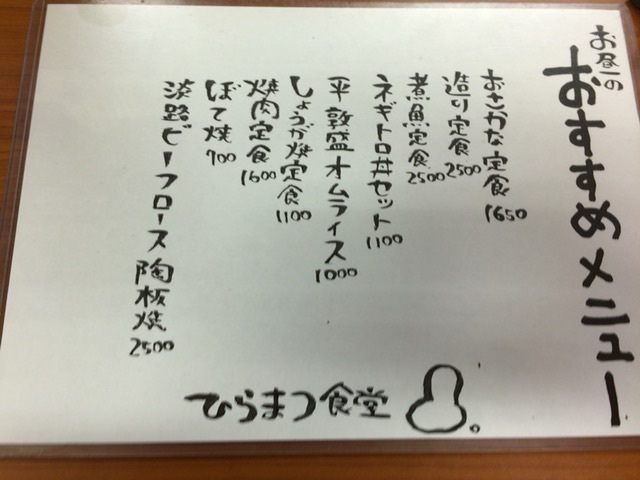 お昼の
おすすめメニュー
おさかな定食 1650
造り定食 2500
煮魚定食 2500
ネギトロ丼セット 1100
平敦盛オムライス 1000
しょうが焼定食 1100
焼肉定食 1600
ぼて焼 700
淡路ビーフロース陶板焼 2500
ひらまつ食堂